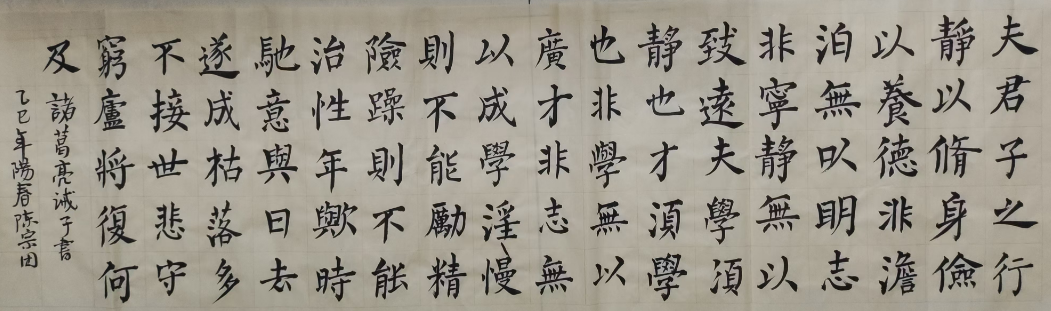 夫君子之行
靜以脩身儉
以養德非澹
泊無以明志
非寧靜無以
致遠夫學須
靜也才須學
也非學無以
廣才非志無
以成學淫慢
則不能勵精
險躁則不能
治性年歟時
馳意與日去
遂成枯落多
不接世悲守
窮廬將復何
及
諸葛亮诫子書
乙巳年陽春陈宗田